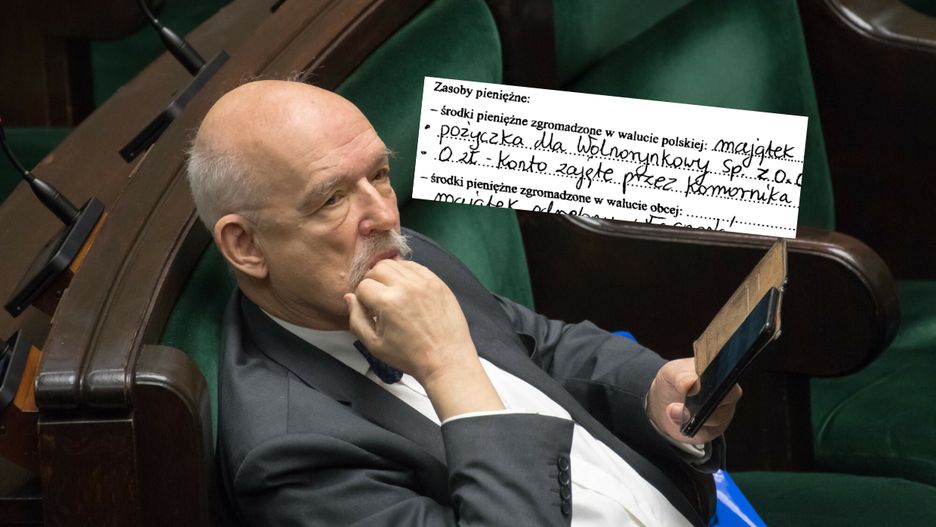 Zasoby pieniężne:
– środki pieniężne zgromadzone w walucie polskiej: majątek
• pożyczka dla Wolnorynkowy Sp. z.o.o
• 0 zł. - konto zajęte przez komornika
– środki pieniężne zgromadzone w walucie obcej:
majątek